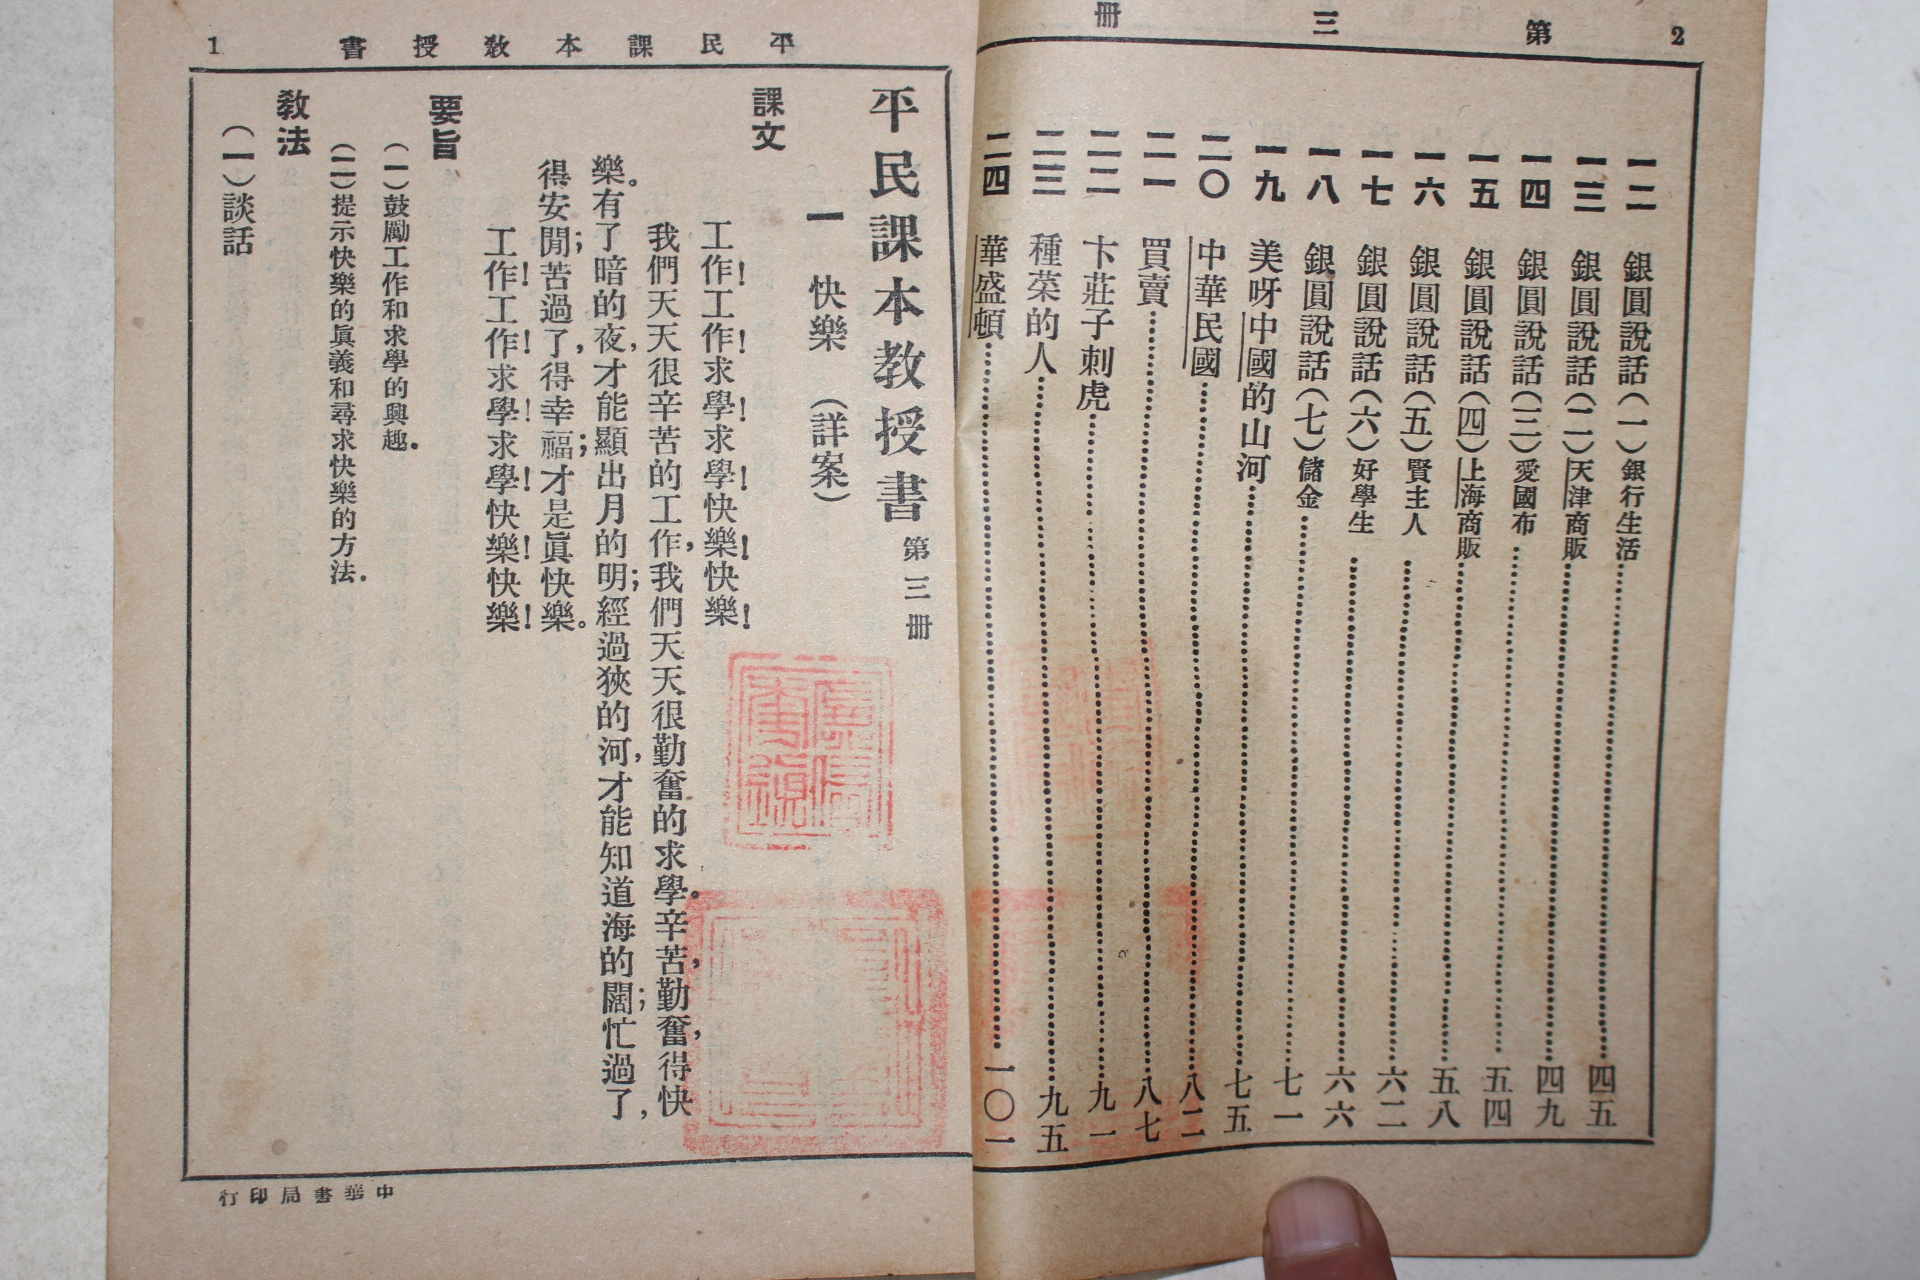 2 第三冊
一二 銀圓說話(一)銀行生活 四五
一三 銀圓說話(二)天津商販 四九
一四 銀圓說話(三)愛國布 五四
一五 銀圓說話(四)上海商販 五八
一六 銀圓說話(五)賢主人 六二
一七 銀圓說話(六)好學生 六六
一八 銀圓說話(七)儲金 七一
一九 美呀中國的山河 七五
二〇 中華民國 八二
二一 買賣 八七
二二 卞莊子刺虎 九一
二三 種菜的人 九五
二四 華盛頓 一〇一
平民課本教授書 1
平民課本教授書 第三冊
一 快樂 (詳案)
課文
工作!工作!求學!求學!快樂!快樂!
我們天天很辛苦的工作,我們天天很勤奮的求學。辛苦,勤奮,得快
樂。有了暗的夜,才能顯出月的明;經過狹的河,才能知道海的闊;忙過了,
得安閒;苦過了,得幸福;才是眞快樂。
工作!工作!求學!求學!快樂!快樂!
要旨
(一)鼓勵工作和求學的興趣.
(二)提示快樂的眞義和尋求快樂的方法.
教法
(一)談話
中華書局印行